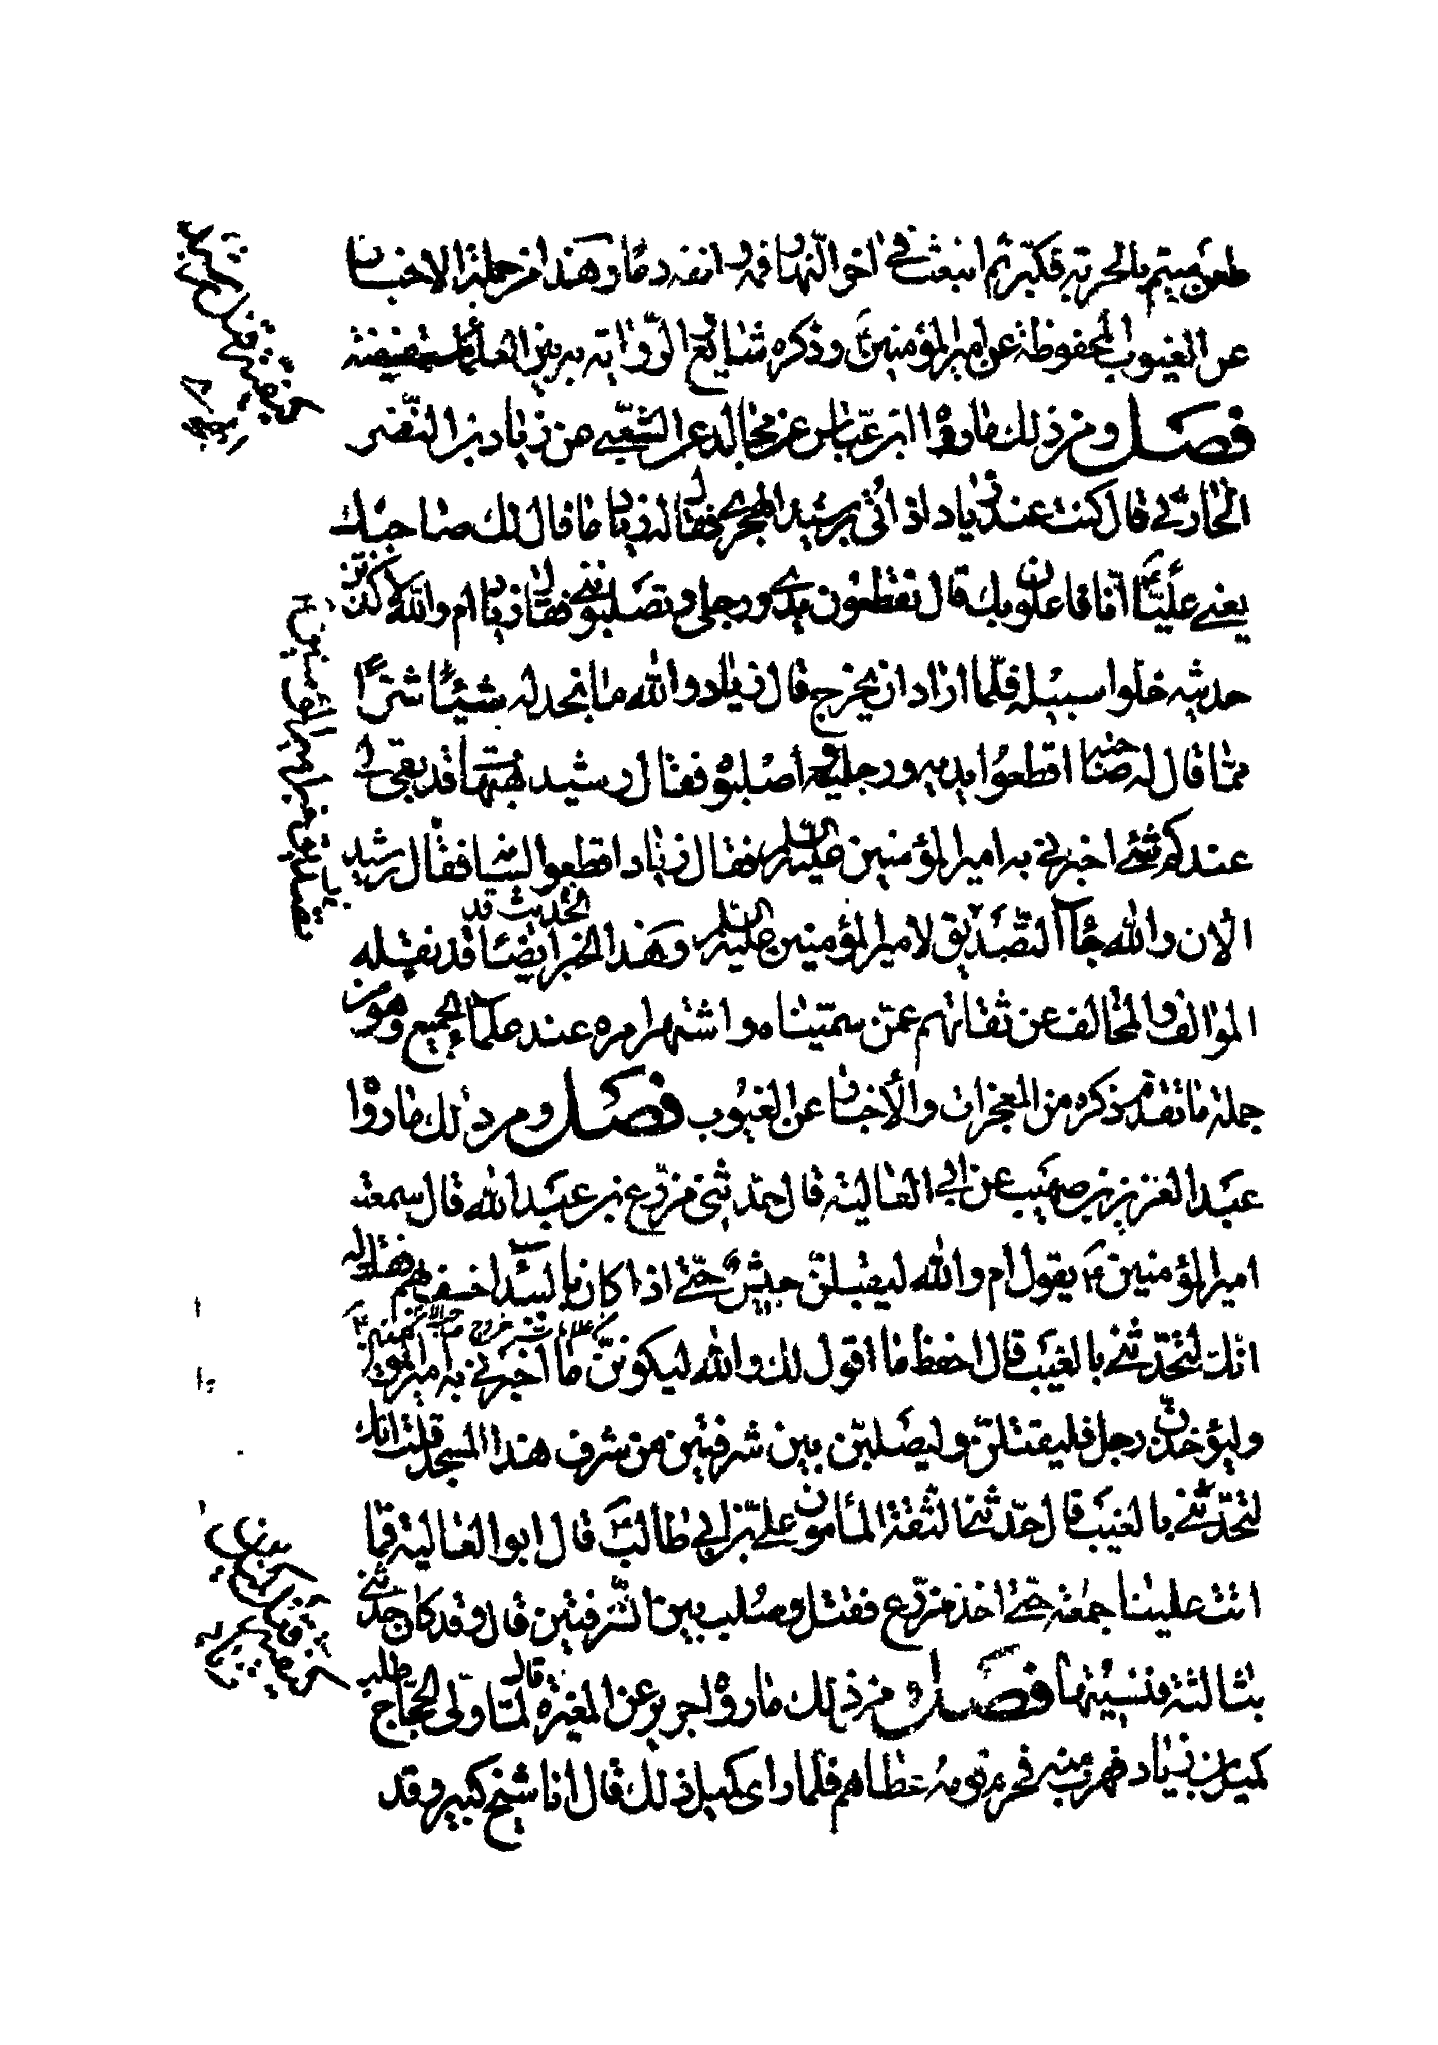 طعن ميثم بالحربة فكبّر ثم انبعث في اخر النهار فمه وانفه دما وهذا من جملة الاخبار
عن الغيوب المحفوظة عن امير المؤمنين ع وذكره شايع الرواية به بين العلماء مستفيضة
فصل ومن ذلك ما رووا ابن عياش عن مجالد عن الشعبي عن زياد بن النضر
الحارثي قال كنت عند زياد اذ أتي برشيد الهجري فقال له زياد ما قال لك صاحبك
يعني عليا ع انا فاعلون بك قال تقطعون يدي ورجلي وتصلبونني فقال زياد ام والله لاكذبن
حديثه خلوا سبيله فلما اراد ان يخرج قال زياد والله ما نجد له شيئا شرا
مما قال له صاحبه اقطعوا يديه ورجليه واصلبوه فقال رشيد هيهات قد بقي لي
عندكم شئ اخبرني به امير المؤمنين عليه السلام فقال زياد اقطعوا لسانه فقال رشيد
الان والله جاء التصديق لامير المؤمنين عليه السلام وهذا الخبر ايضا قد نقله
الموالف والمخالف عن ثقاتهم عمن سميناه واشتهر امره عند علماء الجميع وهو من
جملة ما تقدم ذكره من المعجزات والأخبار عن الغيوب فصل ومن ذلك ما رووا
عبد العزيز بن صهيب عن ابي العالية قال حدّثني مزرع بن عبد الله قال سمعت
امير المؤمنين ع يقول ام والله ليقبلنّ جيش حتى اذا كان بالبيداء خسف بهم فقلت له
انك لتحدّثني بالغيب قال احفظ ما اقول لك والله ليكوننّ ما اخبرني به امير المؤمنين ع
وليؤخذنّ رجل فليقتلنّ وليصلبن بين شرفتين من شرف هذا المسجد قلت انك
لتحدّثني بالغيب قال حدّثني الثقة المأمون علي بن ابي طالب ع قال ابو العالية فما
اتت علينا جمعة حتى اخذ مزرع فقتل وصلب بين الشرفتين قال وقد كان حدثني
بثالثة فنسيتها فصل ومن ذلك ما رواه جرير عن المغيرة قال لما ولي الحجاج طلب
كميل بن زياد فهرب منه فحرم قومه عطاهم فلما راى كميل ذلك قال انا شيخ كبير وقد